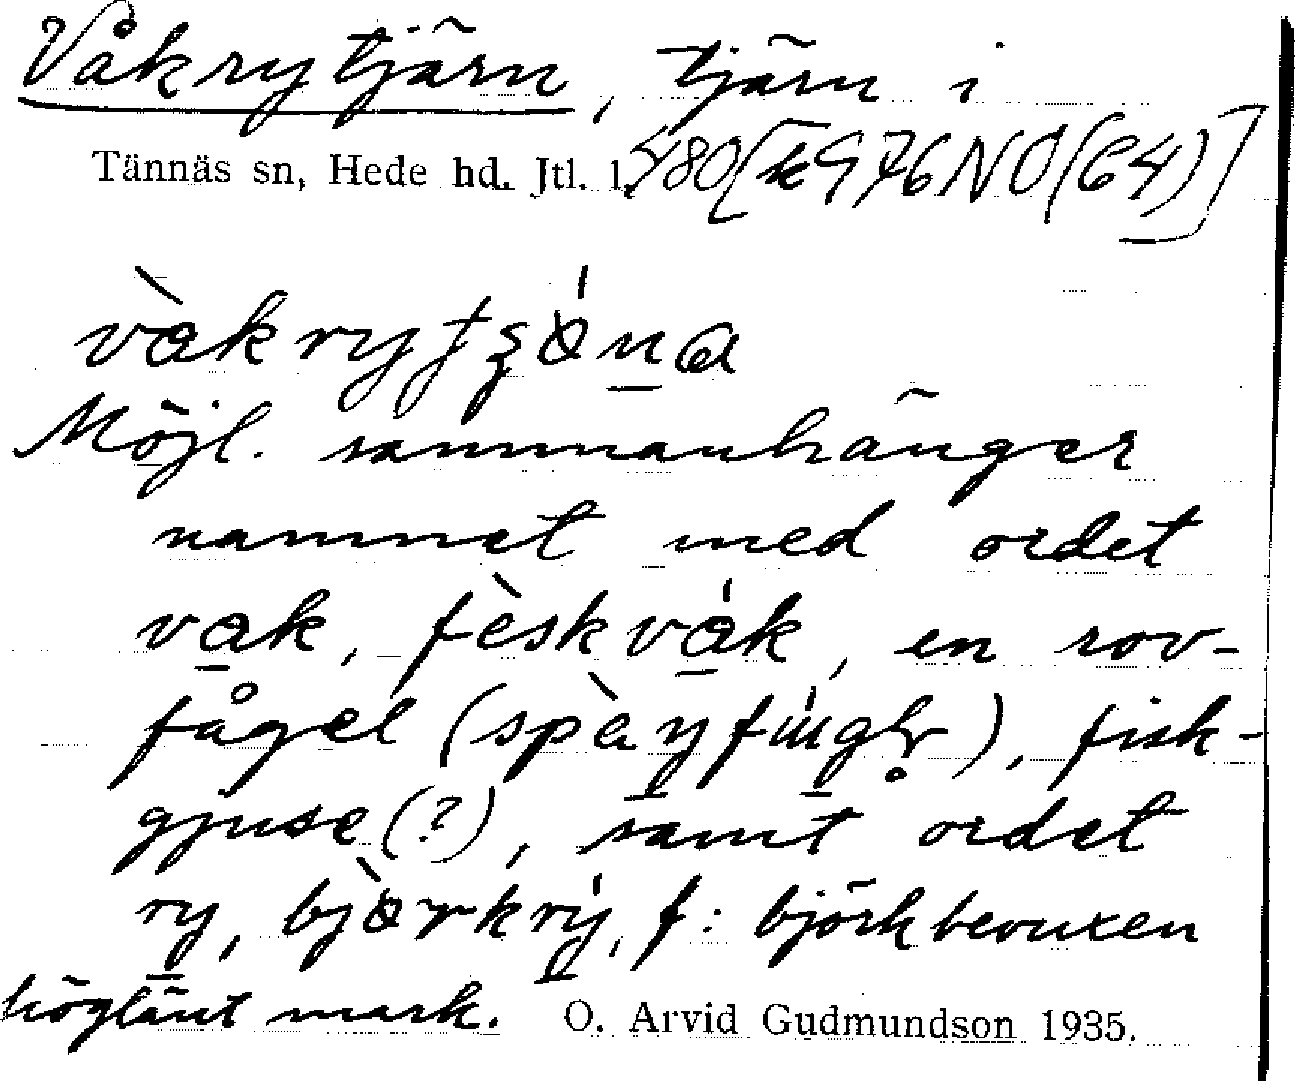 Våkrytjärn, tjärn i
Tännäs sn, Hede hd. Jtl. l. 480[k976NO(C4)]
vàkrytʒɵ́na
Möjl. sammanhänger
namnet med ordet
vak, fèskvák, en rov-
fågel (spàŋfúglr̥), fisk-
gjuse(?), samt ordet
ry, bjɵ̀rkrý, f: björkbevuxen
höglänt mark. O. Arvid Gudmundson 1935.